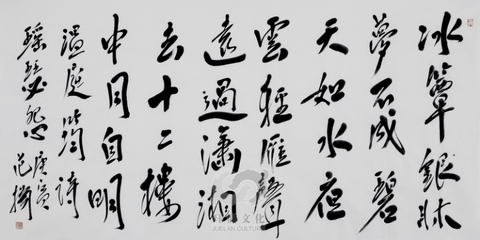 冰簟銀牀
夢不成碧
天如水夜
雲輕雁聲
遠過瀟湘
去十二樓
中月自明
溫庭筠詩
瑤瑟怨
庚寅
范
文化
JUELAN CULTURE